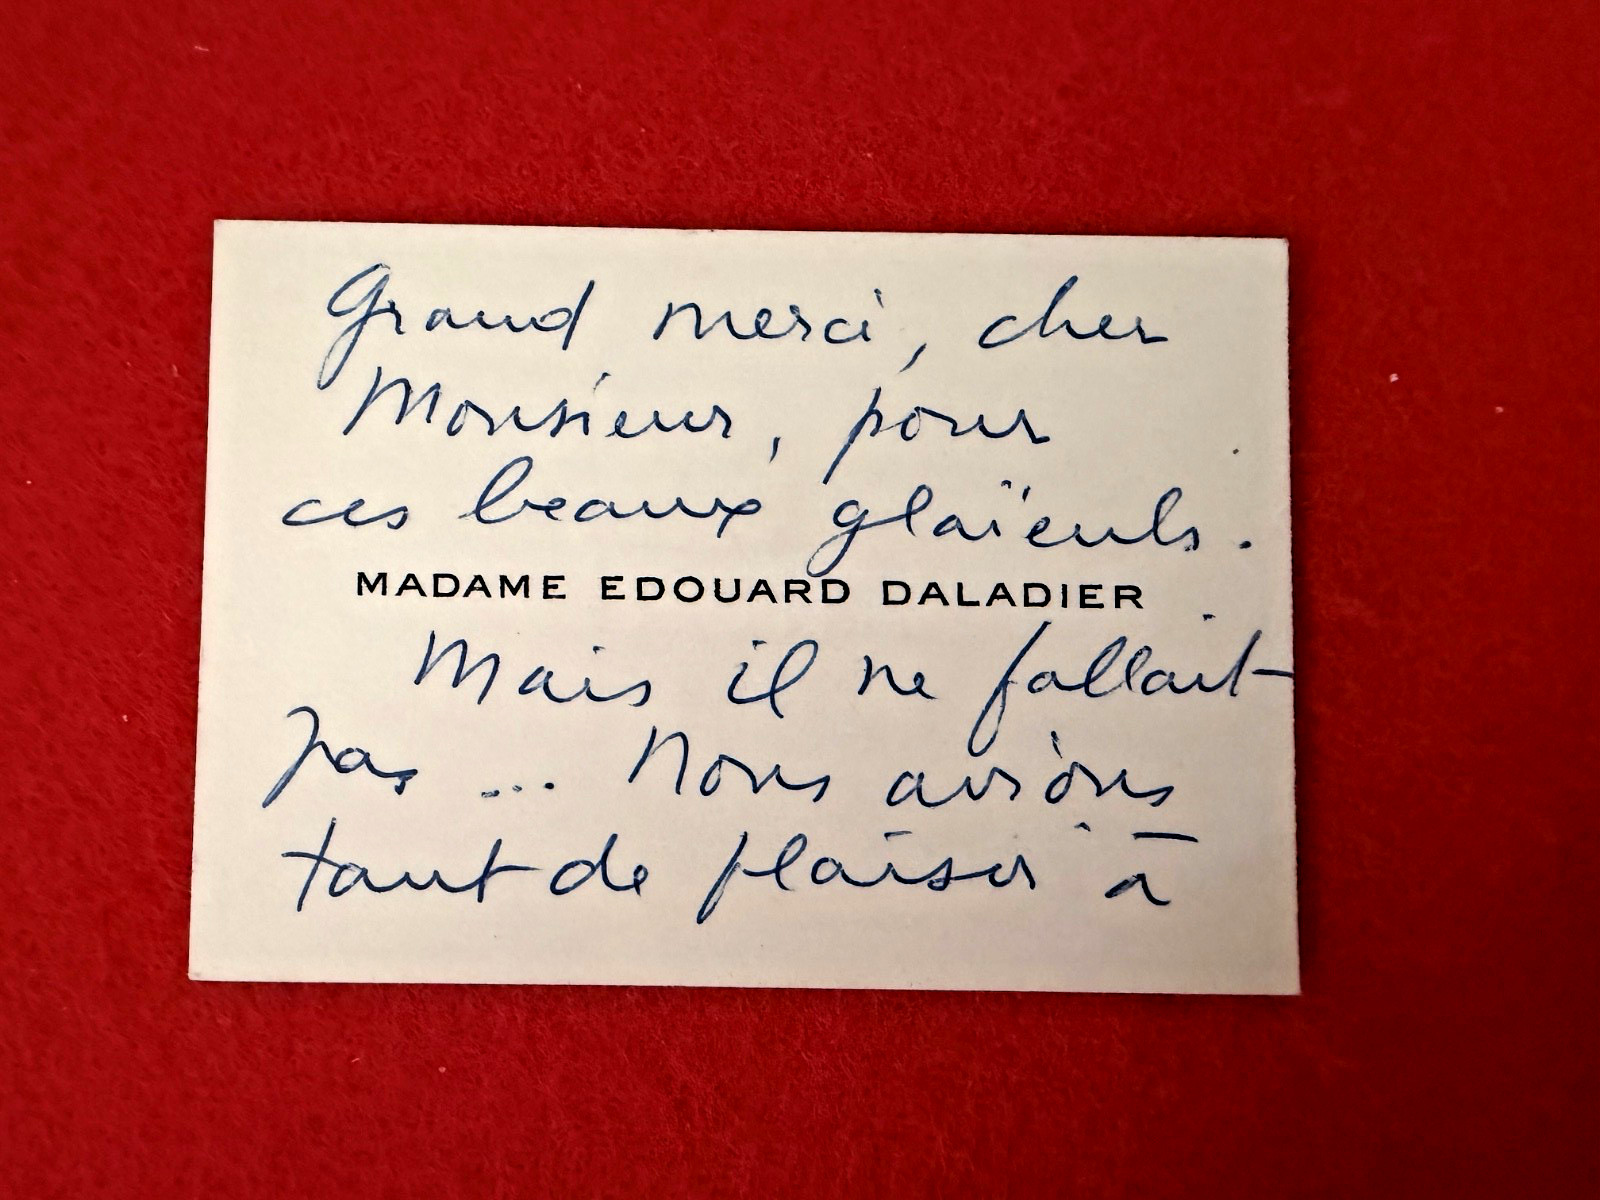 Grand merci, cher
Monsieur, pour
ces beaux glaïeuls.
MADAME EDOUARD DALADIER
Mais il ne fallait
pas ... Nous avions
tant de plaisir à